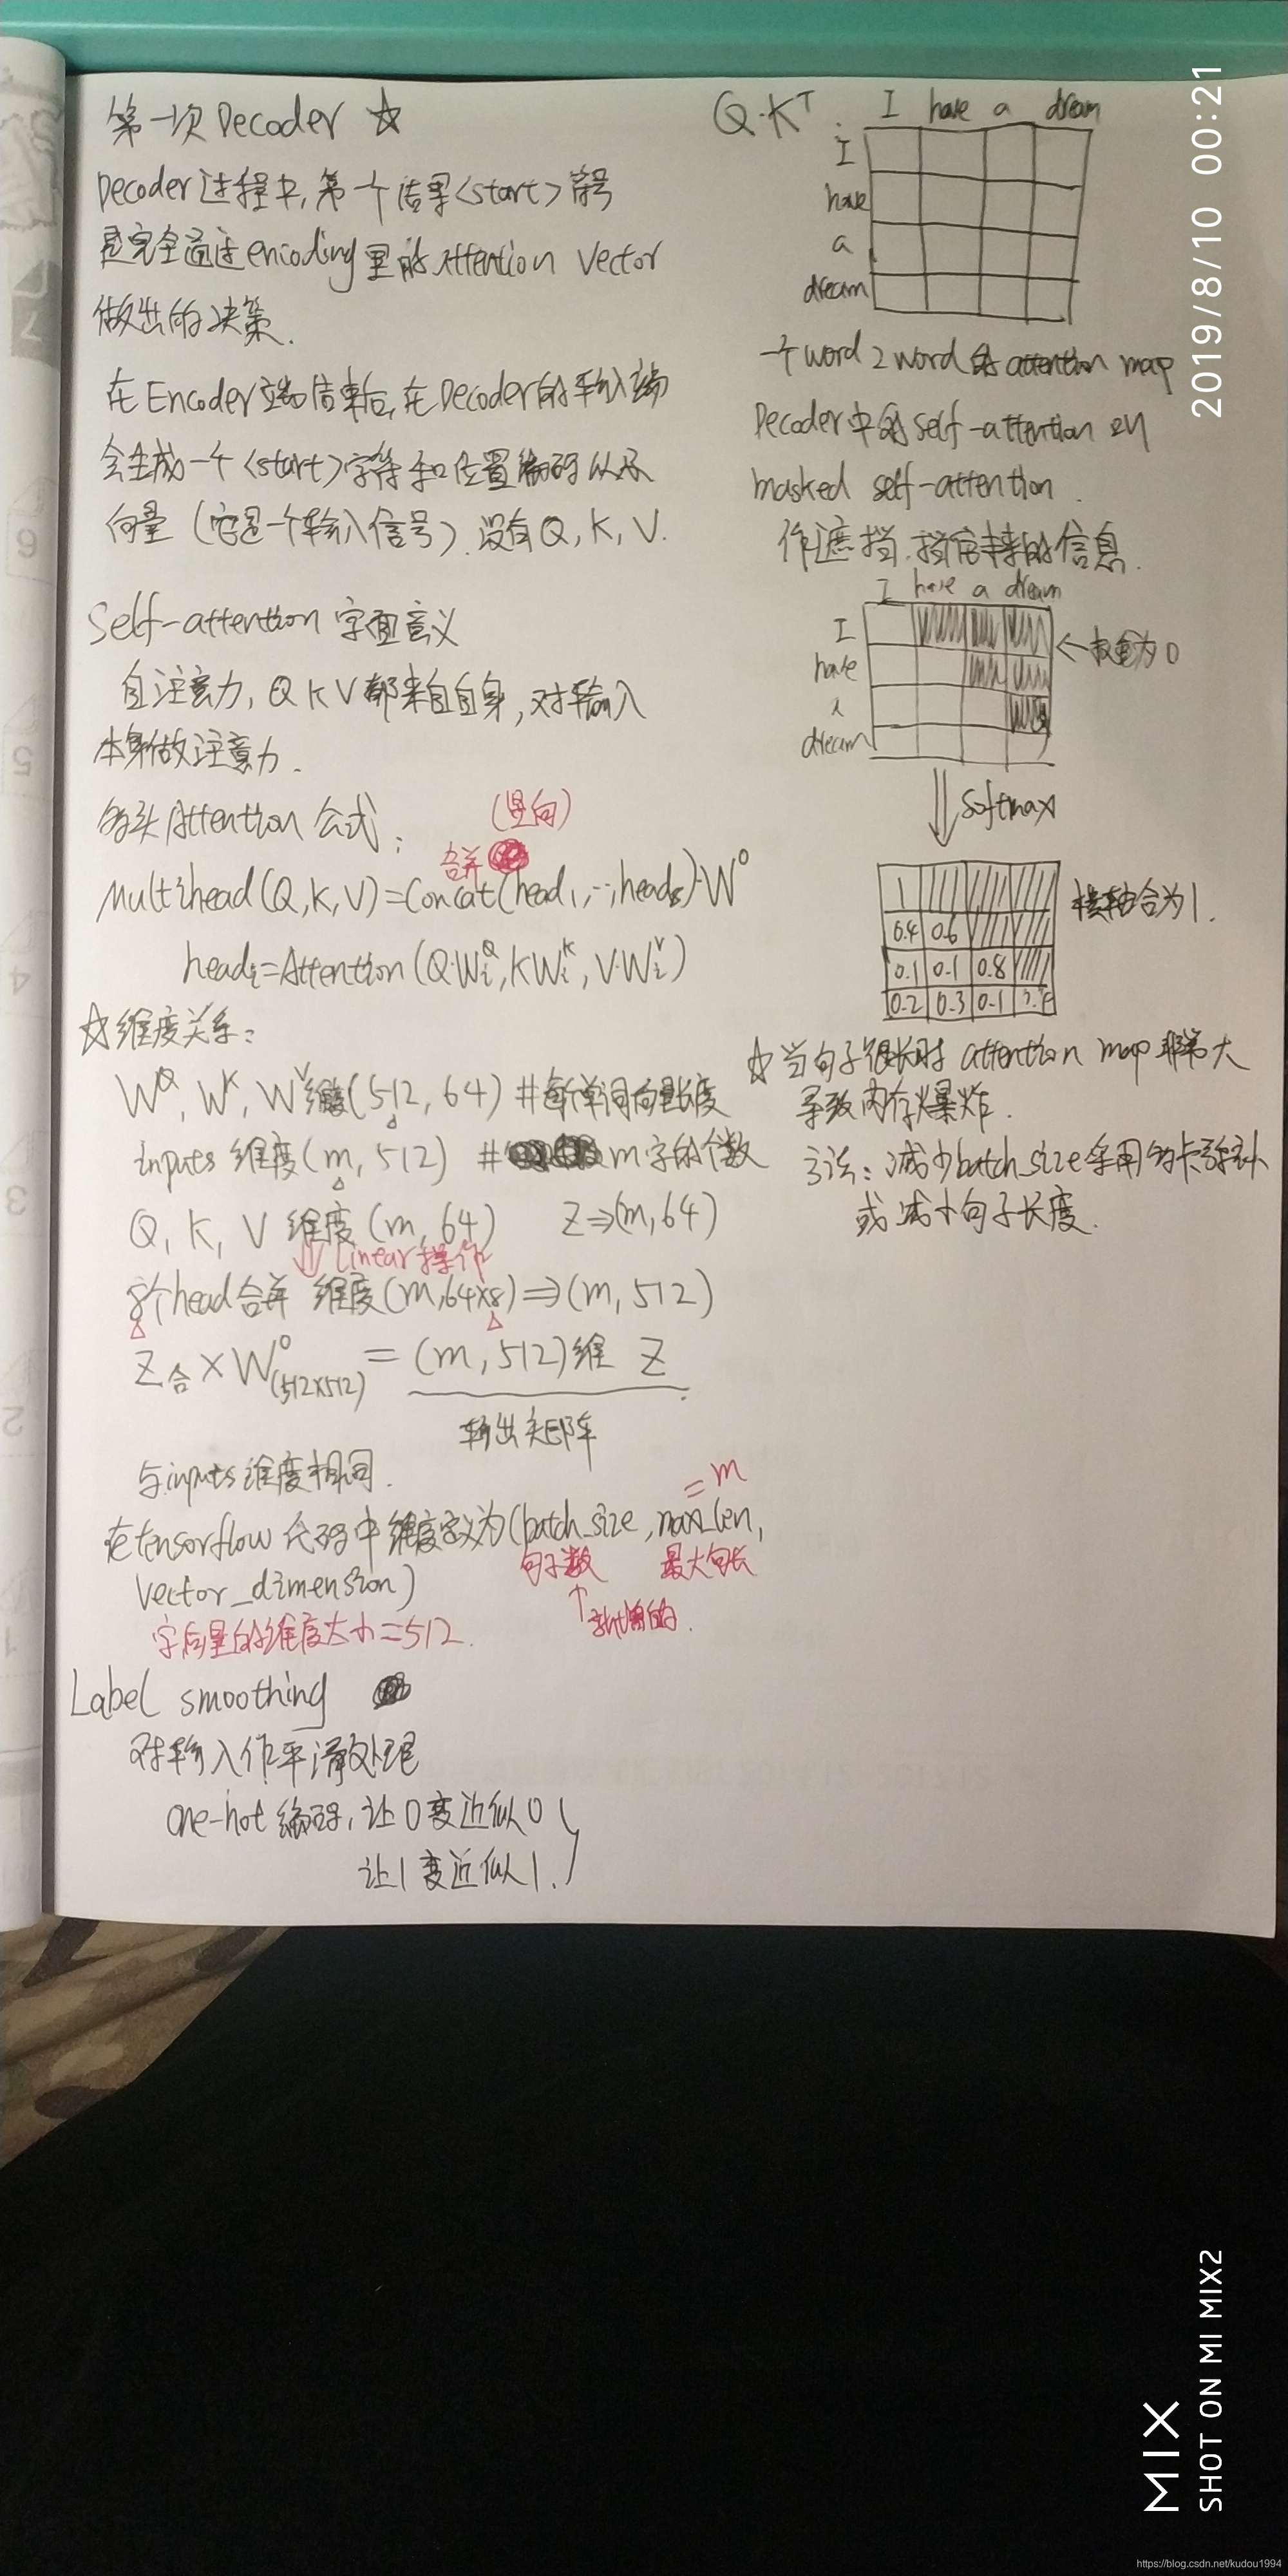 第一次Decoder ☆
Decoder过程中,第一个结果<start>符号
是完全通过encoding里的attention vector
做出的决策.
在Encoder端结束后,在Decoder的输入端
会生成一个<start>字符和位置编码以及
向量(它是一个输入信号).没有Q,K,V.
Self-attention 字面意义
自注意力,Q K V都来自自身,对输入
本身做注意力.
多头Attention 公式:
(竖向)
合并
Multihead(Q,K,V)=Concat(head1,…,head8)·W^O
headi=Attention(Q·Wi^Q,KWi^K,V·Wi^V)
☆维度关系:
W^Q, W^K, W^V维度(512, 64) #每个单词向量长度
inputs 维度(m, 512) # m字的个数
Q, K, V 维度(m, 64) Z⇒(m,64)
⇓ Linear操作
8个head合并 维度(m,64×8)⇒(m, 512)
Z合×W^O(512×512) = (m, 512)维 Z
输出矩阵
与inputs维度相同.
=m
在tensorflow代码中维度定义为(batch_size,max_len,
句子数 最大句长
vector_dimension)
↑
字向量的维度大小=512.
Label smoothing
对输入作平滑处理
one-hot 编码,让0变近似0
让1变近似1.
Q·K^T
I have a dream
I
have
a
dream
一个word2word的attention map
Decoder中的self-attention
masked self-attention.
作遮挡.挡住未来的信息.
I have a dream
I
←权重为0
have
a
dream
⇓ softmax
1
横轴合为1.
0.4 0.6
0.1 0.1 0.8
0.2 0.3 0.1
☆当句子很长时 attention map 非常大
导致内存爆炸.
方法:减少batch_size采用多卡
或减小句子长度.
2019/8/10 00:21
MIX
SHOT ON MI MIX2
https://blog.csdn.net/kudou1994
7
6
5
4
3
2
1